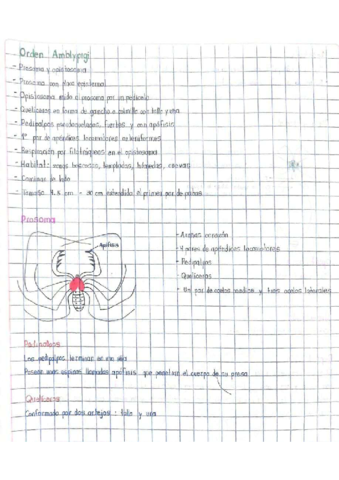 Orden Amblypygi
- Prosoma y opistosoma
- Prosoma con placa esternal
- Opistosoma unido al prosoma por un pedicelo
- Quelíceros en forma de gancho o colmillo con tallo y uña
- Pedipalpos pseudoquelados, fuertes y con apófisis
- 1° par de apéndices locomotores anteniformes
- Respiración por filotráqueas en el opistosoma
- Habitat: zonas boscosas, templadas, húmedas, cuevas
- Carecen de
- Tamaño 4.5 cm - cm extendido el primer par de patas
Prosoma
Apófisis
- Aspecto
- 4 pares de apéndices locomotores
- Pedipalpos
- Quelíceros
- Un par de ocelos medios y tres ocelos laterales
Pedipalpos
Los pedipalpos terminan en una uña
Poseen unas espinas llamadas apófisis que penetran el cuerpo de su presa
Quelíceros
Conformado por dos artejos: tallo y uña